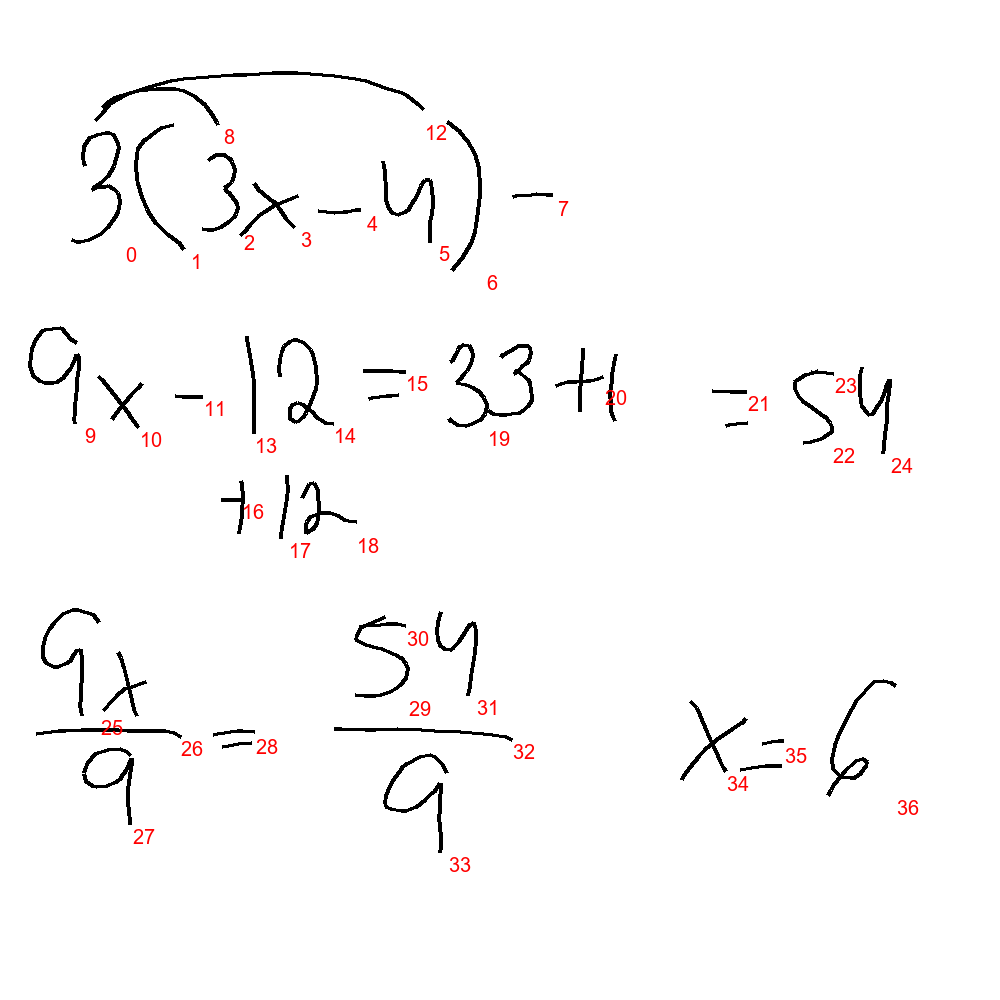 3(3x-4) -
8 12
0 1 2 3 4 5 6 7
9x - 12 = 33 + 1 = 54
9 10 11 13 14 15 19 20 21 22 23 24
+12
16 17 18
9x/9 = 54/9 x = 6
25 26 27 28 29 30 31 32 33 34 35 36